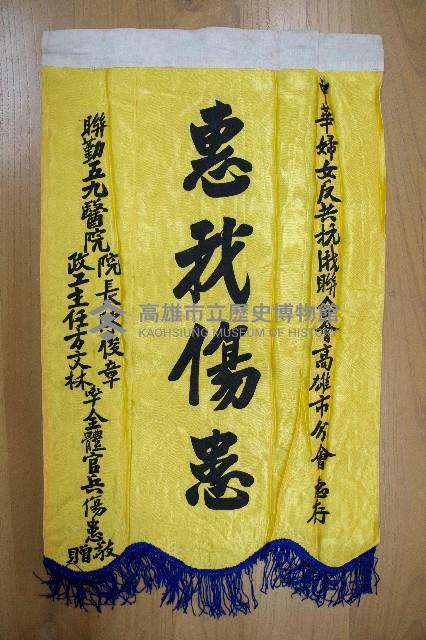 中華婦女反共抗俄聯合會高雄市分會 惠存
惠我傷患
聯勤五九醫院院長 俊章
政工主任方文林 率全體官兵傷患敬贈
高雄市立歷史博物館
KAOHSIUNG MUSEUM OF HISTORY